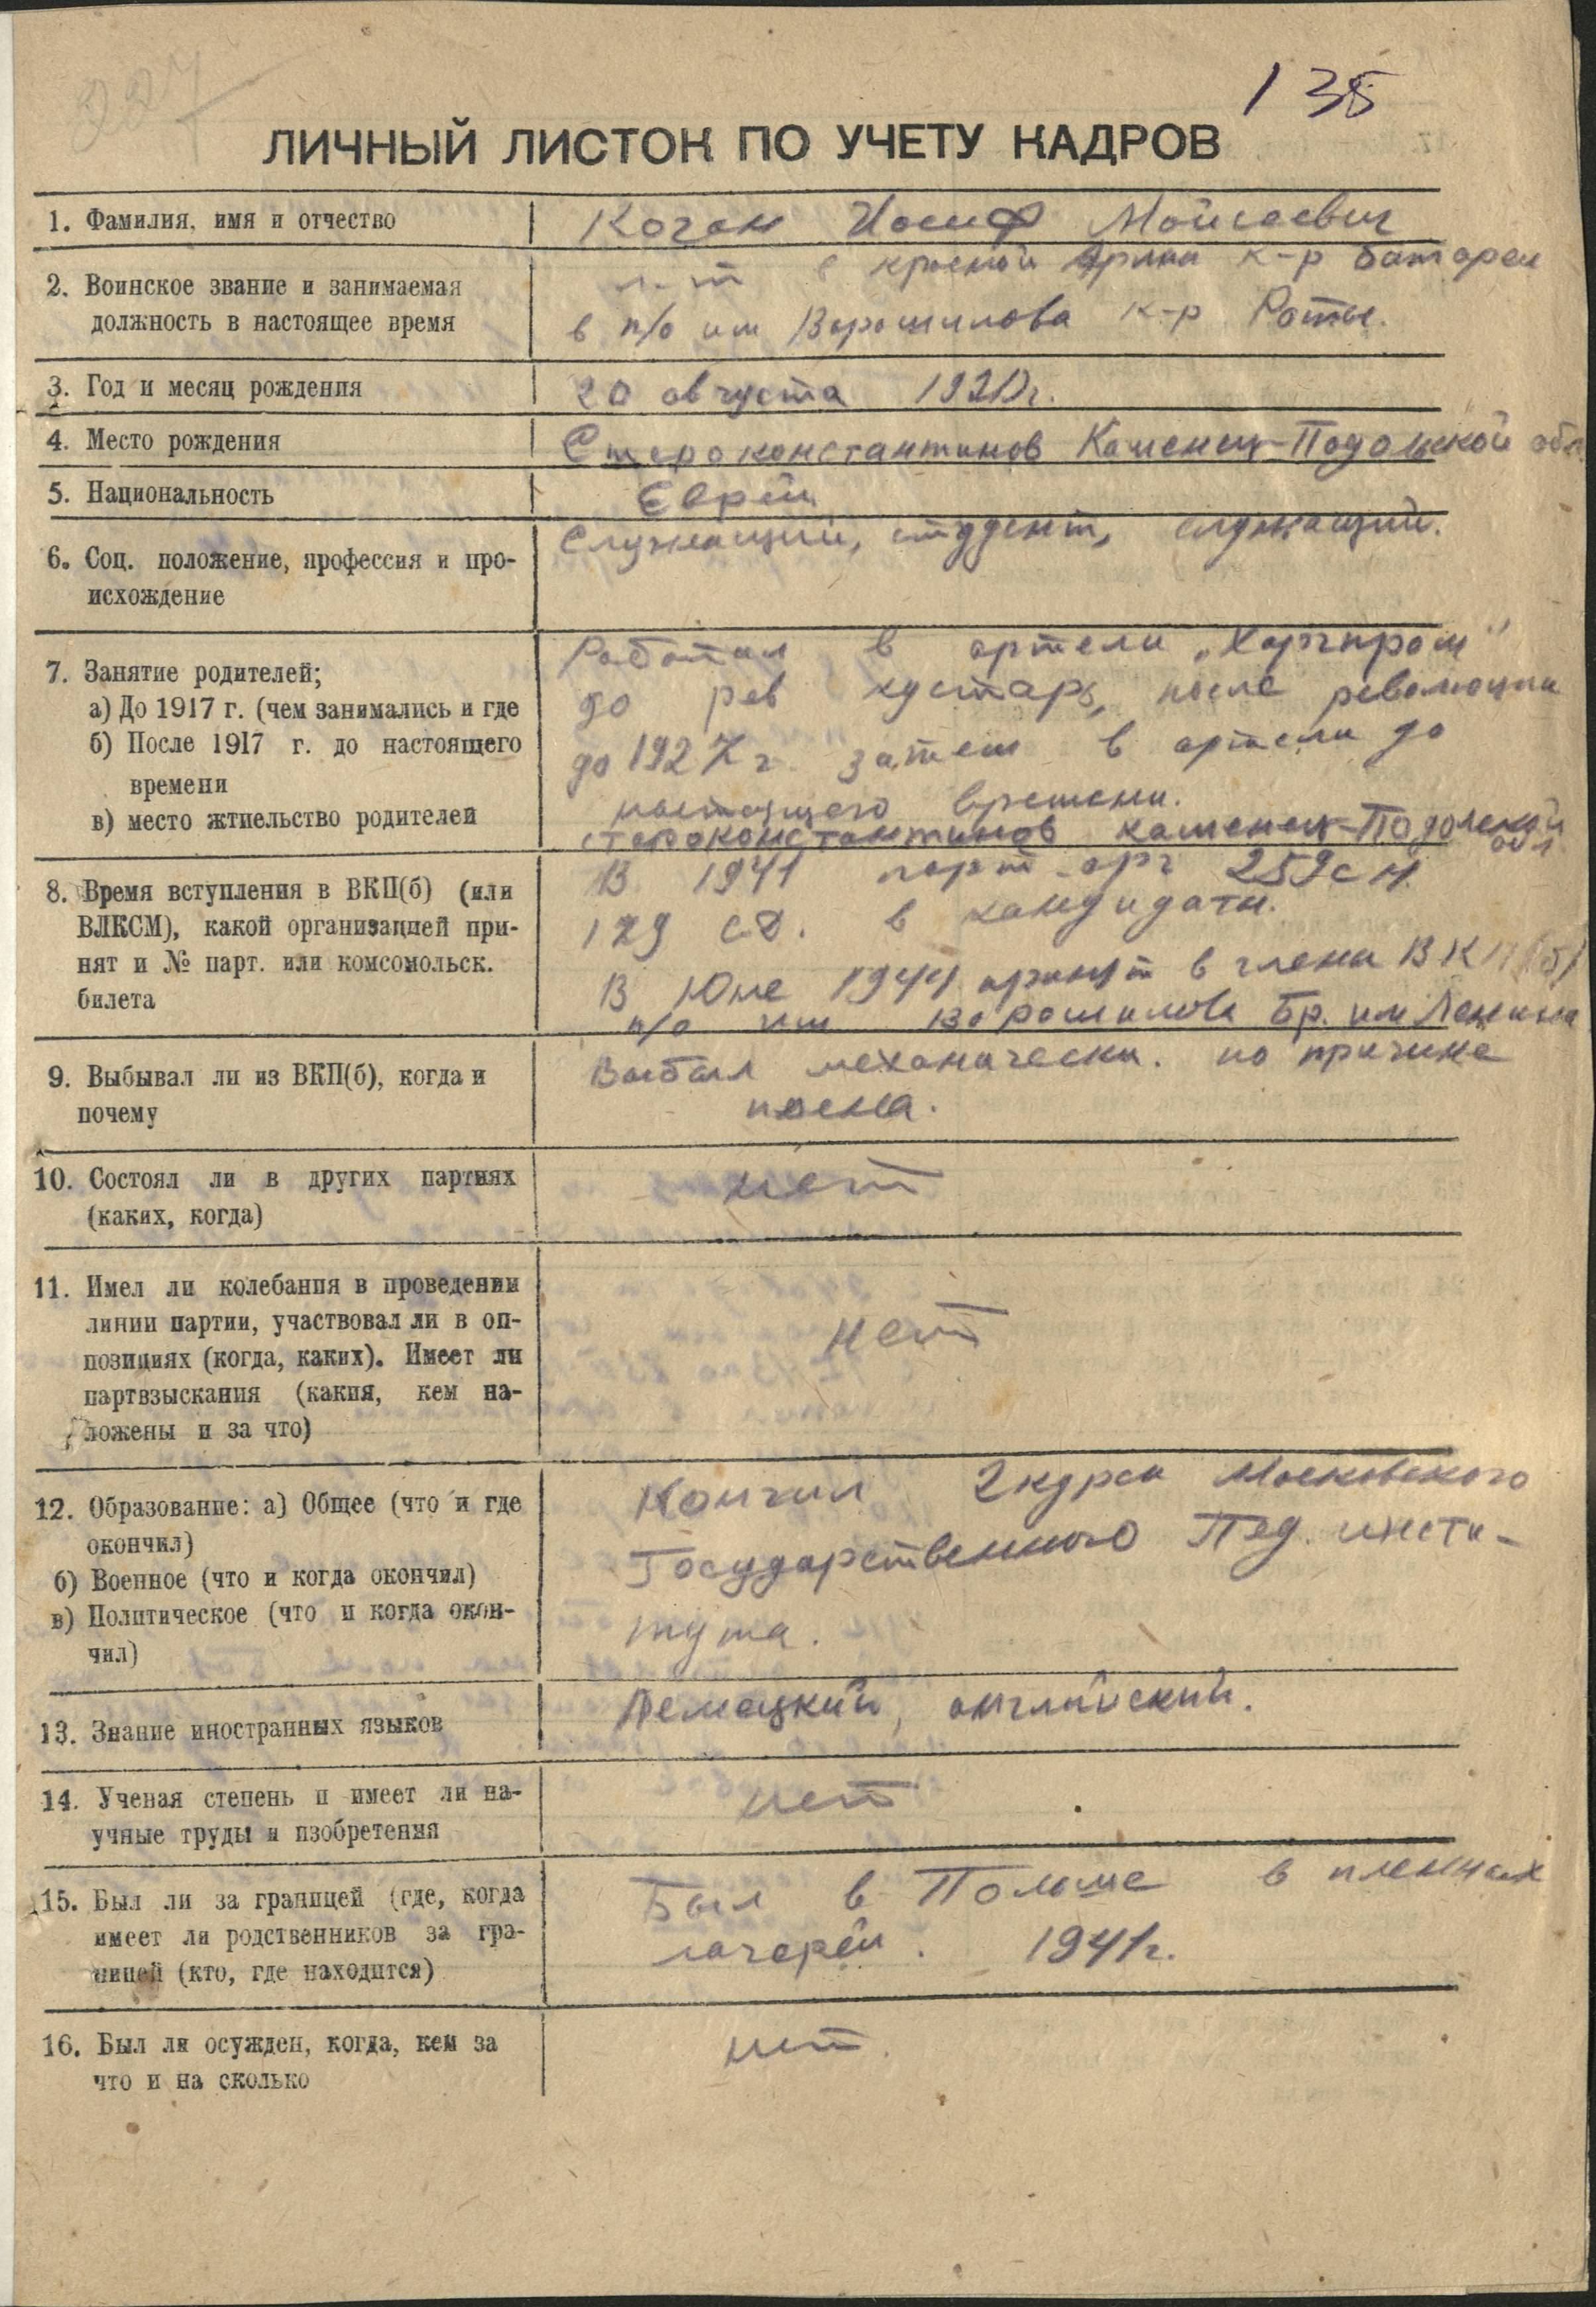 227
135
ЛИЧНЫЙ ЛИСТОК ПО УЧЕТУ КАДРОВ
1. Фамилия, имя и отчество
Коган Иосиф Мойсеевич
2. Воинское звание и занимаемая
должность в настоящее время
л-т в красной Армии к-р батареи
в п/о им Ворошилова к-р Роты.
3. Год и месяц рождения
20 августа 1920г.
4. Место рождения
Староконстантинов Каменец-Подольской обл
5. Национальность
Еврей
6. Соц. положение, профессия и про-
исхождение
Служащий, студент, служащий.
7. Занятие родителей;
а) До 1917 г. (чем занимались и где
б) После 1917 г. до настоящего
времени
в) место жтиельство родителей
Работал в артели „Харчпром"
до рев кустарь, после революции
до 1927г. затем в артели до
настоящего времени.
староконстантинов каменец-Подольской
обл.
8. Время вступления в ВКП(б) (или
ВЛКСМ), какой организацией при-
нят и № парт. или комсомольск.
билета
В 1941 парт-орг 259
129 сд. в кандидаты.
В Юне 1944 принят в члены ВКП(б)
п/о им Ворошилова Бр. им Ленина
9. Выбывал ли из ВКП(б), когда и
почему
Выбыл механически. по причине
плена.
10. Состоял ли в других партиях
(каких, когда)
нет
11. Имел ли колебания в проведении
линии партии, участвовал ли в оп-
позициях (когда, каких). Имеет ли
партвзыскания (какия, кем на-
ложены и за что)
нет
12. Образование: а) Общее (что и где
окончил)
б) Военное (что и когда окончил)
в) Политическое (что и когда окон-
чил)
Кончил 2 курса Московского
Государственного Пед. инсти-
тута.
13. Знание иностранных языков
Немецкий, английский.
14. Ученая степень и имеет ли на-
учные труды и изобретения
нет
15. Был ли за границей (где, когда
имеет ли родственников за гра-
ницей (кто, где находится)
Был в Польше в пленных
лагерей. 1941г.
16. Был ли осужден, когда, кем за
что и на сколько
нет.